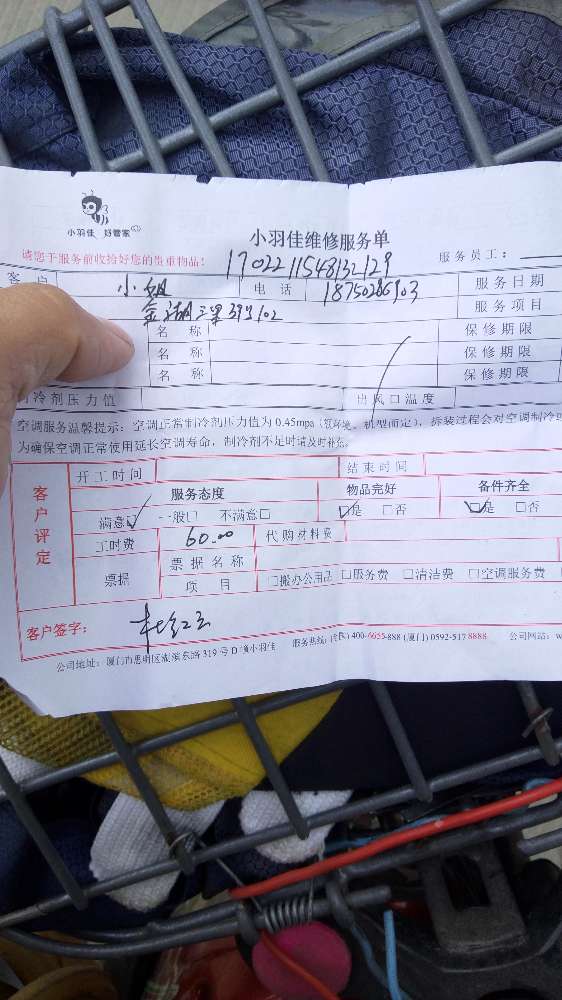 小羽佳 好管家
小羽佳维修服务单
请您于服务前收拾好您的贵重物品!
服务员工:
1702211548132129
客户 小姐 电话 18750286903 服务日期
金湖二里39号102 服务项目
名称 保修期限
名称 保修期限
名称 保修期限
制冷剂压力值 出风口温度
空调服务温馨提示:空调正常制冷剂压力值为0.45mpa(视环境、机型而定),拆装过程会对空调制冷
为确保空调正常使用延长空调寿命,制冷剂不足时请及时补充。
客户评定
开工时间 结束时间
服务态度 物品完好 备件齐全
满意☑ 一般□ 不满意□ ☑是 □否 ☑是 □否
工时费 60.00 代购材料费
票据 票据名称
项目 □搬办公用品 □服务费 □清洁费 □空调服务费
客户签字:
公司地址:厦门市思明区湖滨东路319号D项小羽佳 服务热线:(全国)400-6655-888 (厦门)0592-517 8888 公司网站:w